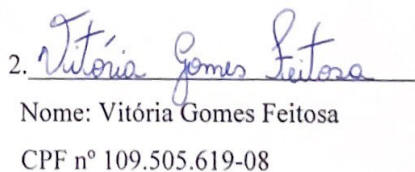 2. Vitória Gomes Feitosa
Nome: Vitória Gomes Feitosa
CPF nº 109.505.619-08